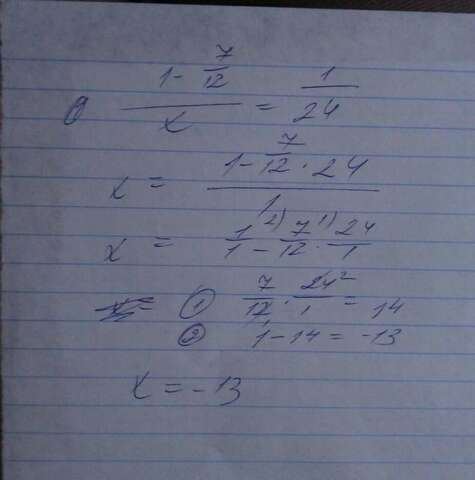 1 - 7/12 / x = 1/24
x = 1 - 7/12 · 24 / 1
x = 1/1 2) - 7/12 1) · 24/1
① 7/12 · 24/1 2 = 14
② 1 - 14 = -13
x = -13